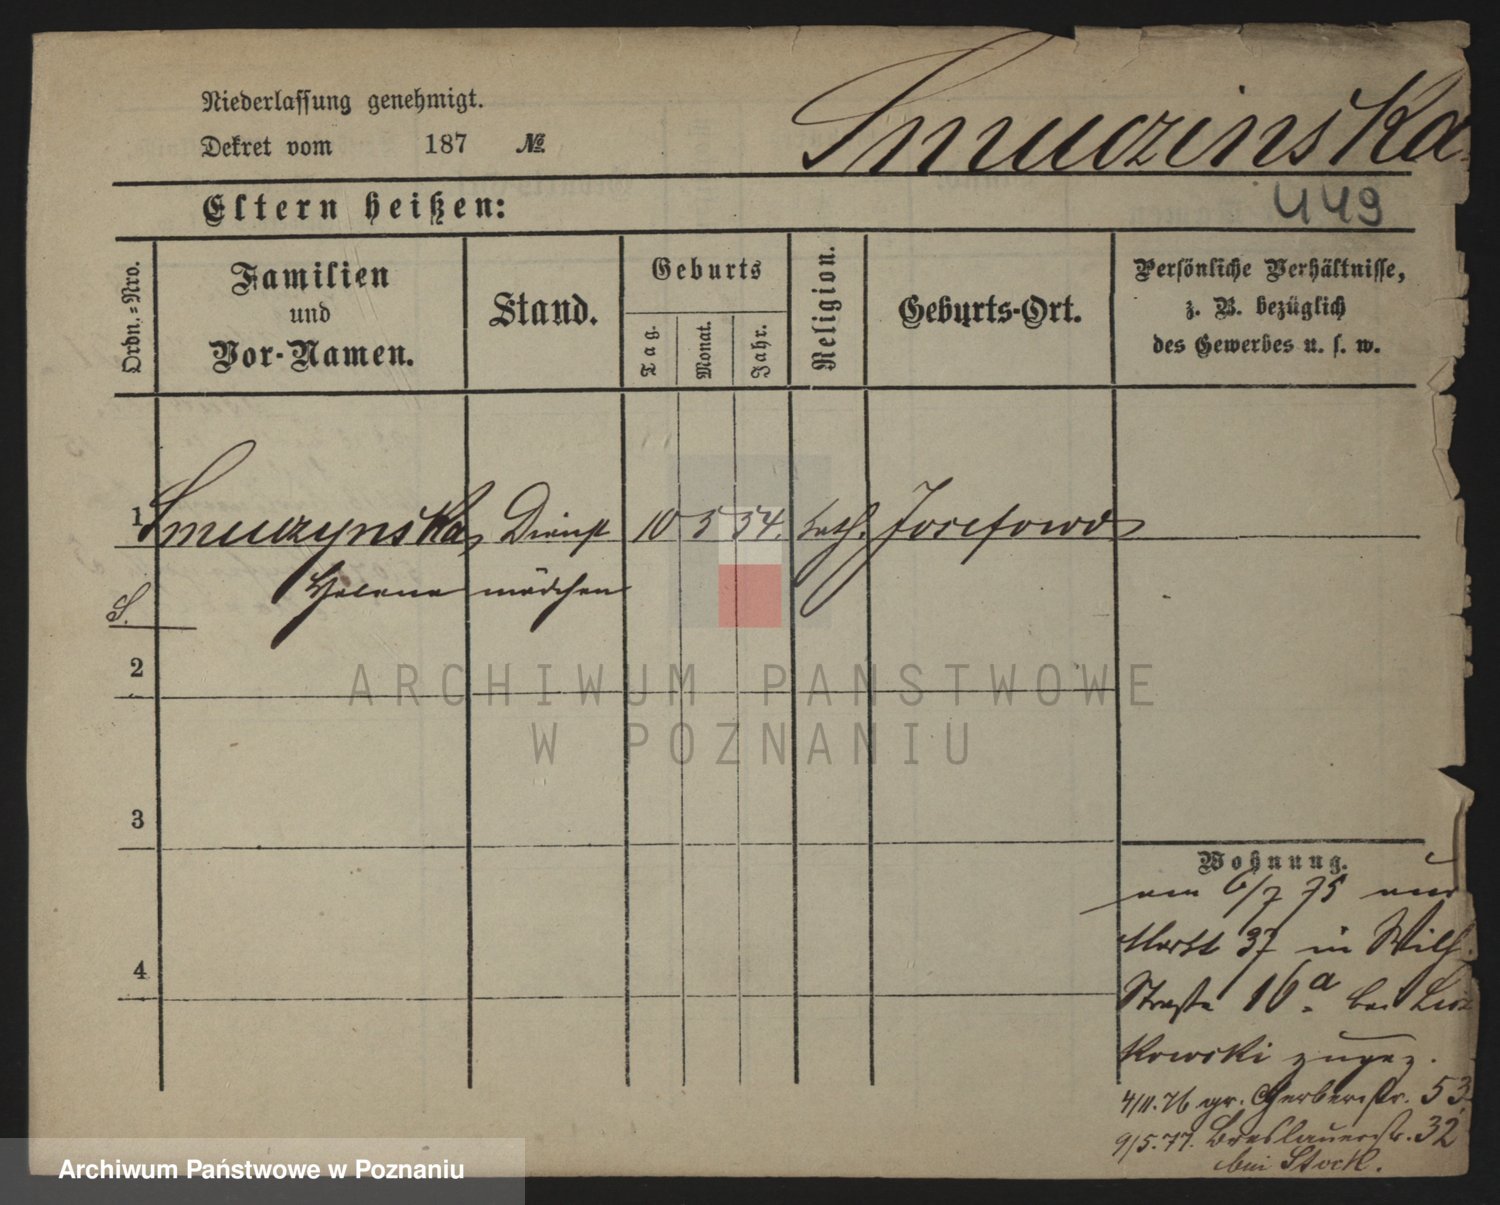 Niederlassung genehmigt.
Smuczinska
Dekret vom 187 №
Eltern heißen:
449
Ordn.=Nro.
Familien
und
Vor-Namen.
Stand.
Geburts
Tag.
Monat.
Jahr.
Religion.
Geburts-Ort.
Persönliche Verhältnisse,
z. B. bezüglich
des Gewerbes u. s. w.
1 Smuczynska Dienst 10 5 54. kath. Josefowo
Helene mädchen
S.
2
ARCHIWUM PAŃSTWOWE
W POZNANIU
3
Wohnung.
6/7 75
Markt 37 in Wilh.
Straße 16a bei
kowski zugez.
4/11.76 gr. Gerberstr. 53.
9/5.77. Breslauerstr. 32
bei Stock.
4
Archiwum Państwowe w Poznaniu